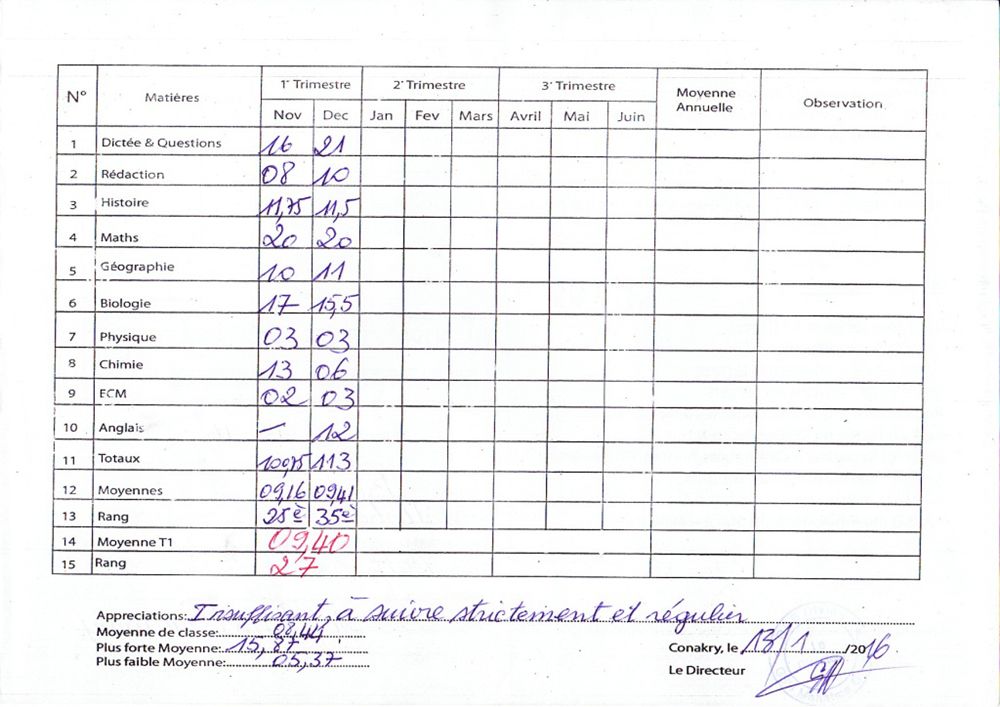 N° Matières 1er Trimestre 2e Trimestre 3e Trimestre Moyenne Annuelle Observation
Nov Dec Jan Fev Mars Avril Mai Juin
1 Dictée & Questions 16 21
2 Rédaction 08 10
3 Histoire 11,75 11,5
4 Maths 20 20
5 Géographie 10 11
6 Biologie 17 15,5
7 Physique 03 03
8 Chimie 13 06
9 ECM 02 03
10 Anglais — 12
11 Totaux 100,75 113
12 Moyennes 09,16 09,41
13 Rang 25è 35è
14 Moyenne T1 09,40
15 Rang 27
Appreciations: Insuffisant, à suivre strictement et régulier
Moyenne de classe:
Plus forte Moyenne: 15,87
Plus faible Moyenne: 05,37
Conakry, le 13/1/2016
Le Directeur